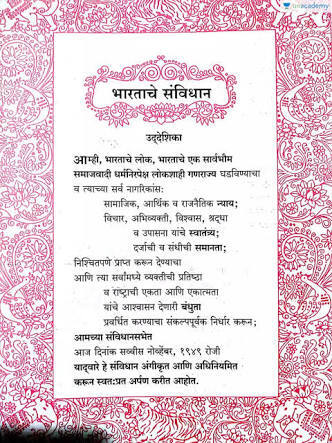 unacademy
भारताचे संविधान
उद्देशिका
आम्ही, भारताचे लोक, भारताचे एक सार्वभौम
समाजवादी धर्मनिरपेक्ष लोकशाही गणराज्य घडविण्याचा
व त्याच्या सर्व नागरिकांस:
सामाजिक, आर्थिक व राजनैतिक न्याय;
विचार, अभिव्यक्ती, विश्वास, श्रद्धा
व उपासना यांचे स्वातंत्र्य;
दर्जाची व संधीची समानता;
निश्चितपणे प्राप्त करून देण्याचा
आणि त्या सर्वांमध्ये व्यक्तीची प्रतिष्ठा
व राष्ट्राची एकता आणि एकात्मता
यांचे आश्वासन देणारी बंधुता
प्रवर्धित करण्याचा संकल्पपूर्वक निर्धार करून;
आमच्या संविधानसभेत
आज दिनांक सव्वीस नोव्हेंबर, १९४९ रोजी
याद्वारे हे संविधान अंगीकृत आणि अधिनियमित
करून स्वत:प्रत अर्पण करीत आहोत.